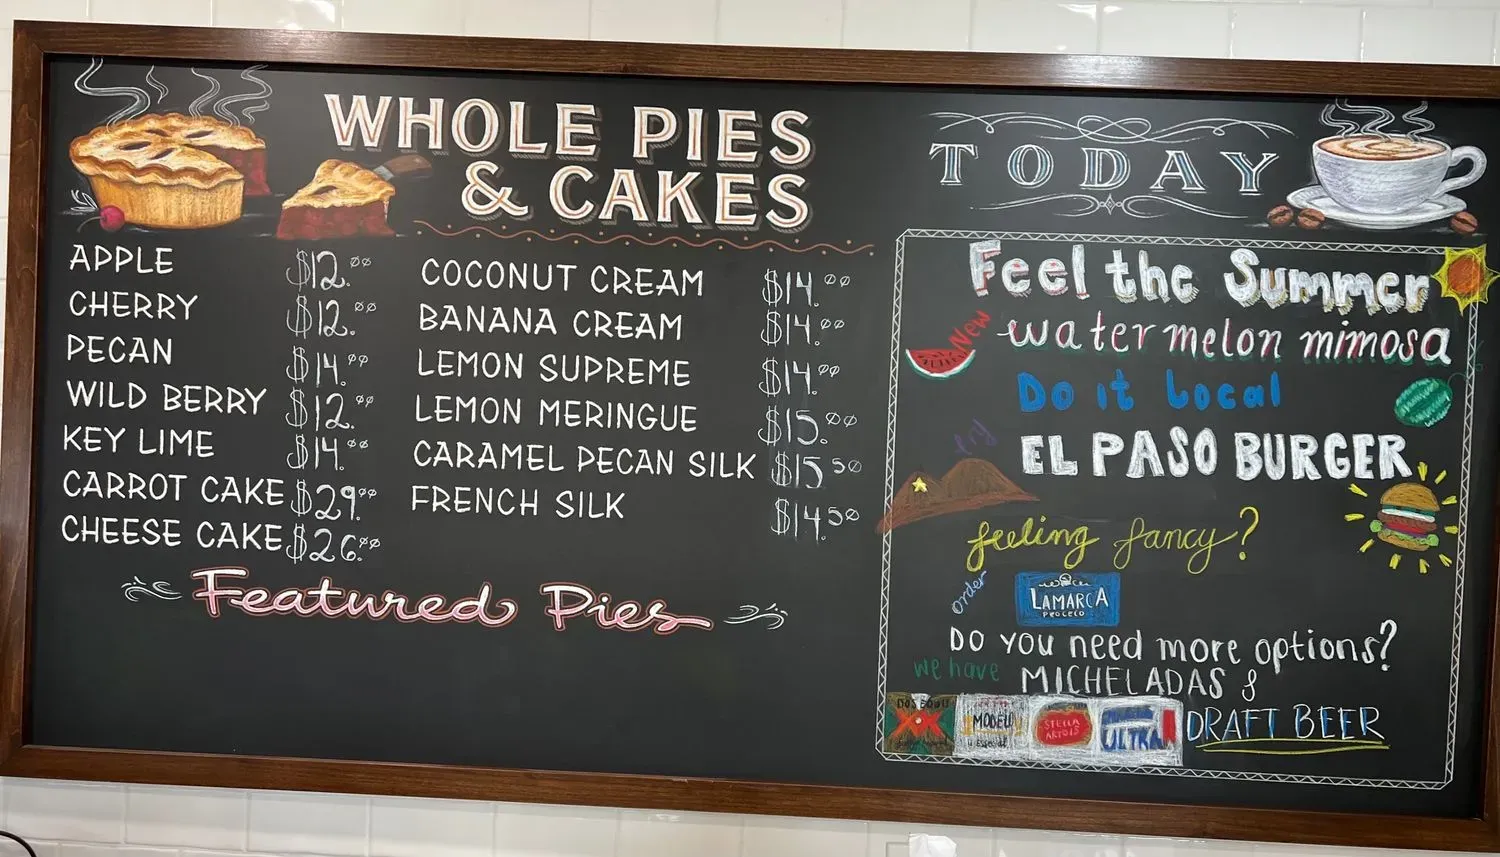 WHOLE PIES
& CAKES
APPLE $12.00
CHERRY $12.00
PECAN $14.00
WILD BERRY $12.00
KEY LIME $14.00
CARROT CAKE $29.00
CHEESE CAKE $26.00
COCONUT CREAM $14.00
BANANA CREAM $14.00
LEMON SUPREME $14.00
LEMON MERINGUE $15.00
CARAMEL PECAN SILK $15.50
FRENCH SILK $14.50
Featured Pies
TODAY
Feel the Summer
New
watermelon mimosa
Do it Local
try
EL PASO BURGER
feeling fancy?
order
LAMARCA
PROCECO
DO YOU need more options?
we have MICHELADAS &
DOS EQUIS
XX
MODELO
especial
STELLA
ARTOIS
ULTRA
DRAFT BEER